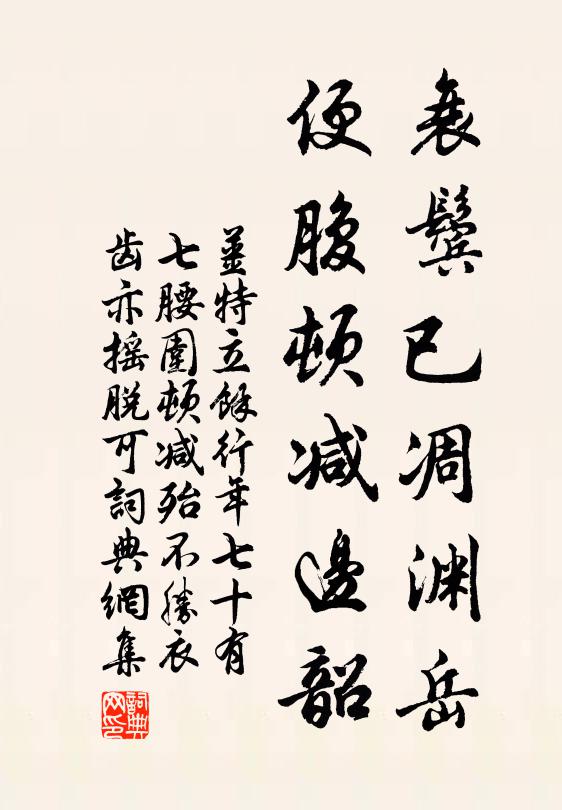 衰鬓已凋渊岳
便腹顿减邊韶
姜特立餘行年七十有
七腰圍顿减殆不勝衣
齿亦摇脱可詞典網集
詞典
网印